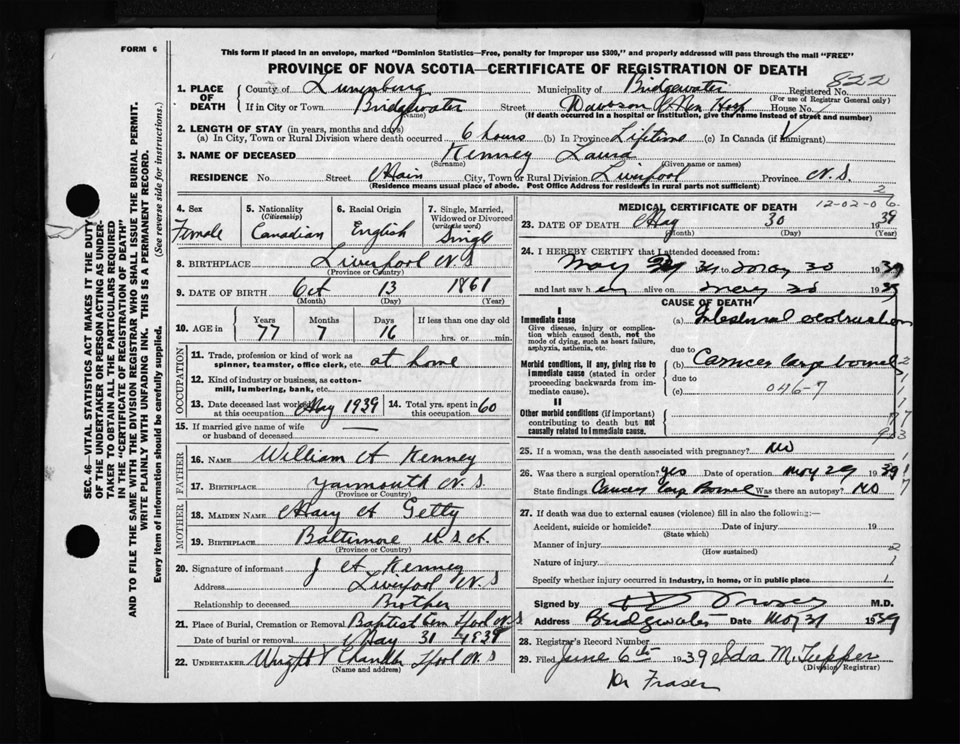 FORM 6
This form if placed in an envelope, marked "Dominion Statistics—Free, penalty for improper use $300," and properly addressed will pass through the mail "FREE"
PROVINCE OF NOVA SCOTIA—CERTIFICATE OF REGISTRATION OF DEATH
822
1. PLACE OF DEATH
County of Lunenburg Municipality of Bridgewater Registered No.
(For use of Registrar General only)
If in City or Town Bridgewater Street Dawson House No.
(Name) (If death occurred in a hospital or institution, give the name instead of street and number)
2. LENGTH OF STAY (in years, months and days)
(a) In City, Town or Rural Division where death occurred 6 hours (b) In Province Lifetime (c) In Canada (if immigrant)
3. NAME OF DECEASED Kenney Laura
(Surname) (Given name or names)
RESIDENCE No. Street Main City, Town or Rural Division Liverpool Province N.S.
(Residence means usual place of abode. Post Office Address for residents in rural parts not sufficient)
4. Sex Female
5. Nationality (Citizenship) Canadian
6. Racial Origin English
7. Single, Married, Widowed or Divorced (write the word) Single
8. BIRTHPLACE Liverpool N S
(Province or Country)
9. DATE OF BIRTH Oct 13 1861
(Month) (Day) (Year)
10. AGE in Years Months Days If less than one day old
77 7 16 hrs. or min.
OCCUPATION
11. Trade, profession or kind of work as spinner, teamster, office clerk, etc. at home
12. Kind of industry or business, as cotton-mill, lumbering, bank, etc.
13. Date deceased last worked at this occupation May 1939 14. Total yrs. spent in this occupation 60
15. If married give name of wife or husband of deceased —
FATHER
16. NAME William A Kenney
17. BIRTHPLACE Yarmouth N.S
(Province or Country)
MOTHER
18. MAIDEN NAME Mary A Getty
19. BIRTHPLACE Baltimore U.S.A.
(Province or Country)
20. Signature of informant J A Kenney
Address Liverpool N.S
Relationship to deceased Brother
21. Place of Burial, Cremation or Removal Baptist Cem Lpool N S
Date of burial or removal May 31 1939
22. UNDERTAKER Wright & Chandler Lpool N S
(Name and address)
MEDICAL CERTIFICATE OF DEATH 12-02-0 6.
2
23. DATE OF DEATH May 30 1939
(Month) (Day) (Year)
24. I HEREBY CERTIFY that I attended deceased from:
May 39 to May 30 1939
and last saw her alive on May 30 1939
CAUSE OF DEATH
I
Immediate cause (a) Intestinal obstruction
Give disease, injury or complication which caused death, not the mode of dying, such as heart failure, asphyxia, asthenia, etc.
due to
Morbid conditions, if any, giving rise to immediate cause (stated in order proceeding backwards from immediate cause).
(b) Cancer large bowel
due to
(c) 046-7
II
Other morbid conditions (if important) contributing to death but not causally related to immediate cause.
25. If a woman, was the death associated with pregnancy? No
26. Was there a surgical operation? yes Date of operation May 29 1939
State findings Cancer large Bowel Was there an autopsy? No
27. If death was due to external causes (violence) fill in also the following:—
Accident, suicide or homicide? Date of injury 19
(State which)
Manner of injury 2
(How sustained)
Nature of injury 1
Specify whether injury occurred in industry, in home, or in public place 1
Signed by M.D.
Address Bridgewater Date May 31 1939
28. Registrar's Record Number
29. Filed June 6th 1939 Ida M. Tupper
(Division Registrar)
Dr Fraser
SEC. 46—VITAL STATISTICS ACT MAKES IT THE DUTY
OF THE UNDERTAKER OR PERSON ACTING AS UNDER-
TAKER TO OBTAIN ALL THE PARTICULARS REQUIRED
IN THE "CERTIFICATE OF REGISTRATION OF DEATH"
AND TO FILE THE SAME WITH THE DIVISION REGISTRAR WHO SHALL ISSUE THE BURIAL PERMIT.
WRITE PLAINLY WITH UNFADING INK. THIS IS A PERMANENT RECORD.
Every item of information should be carefully supplied. (See reverse side for instructions.)